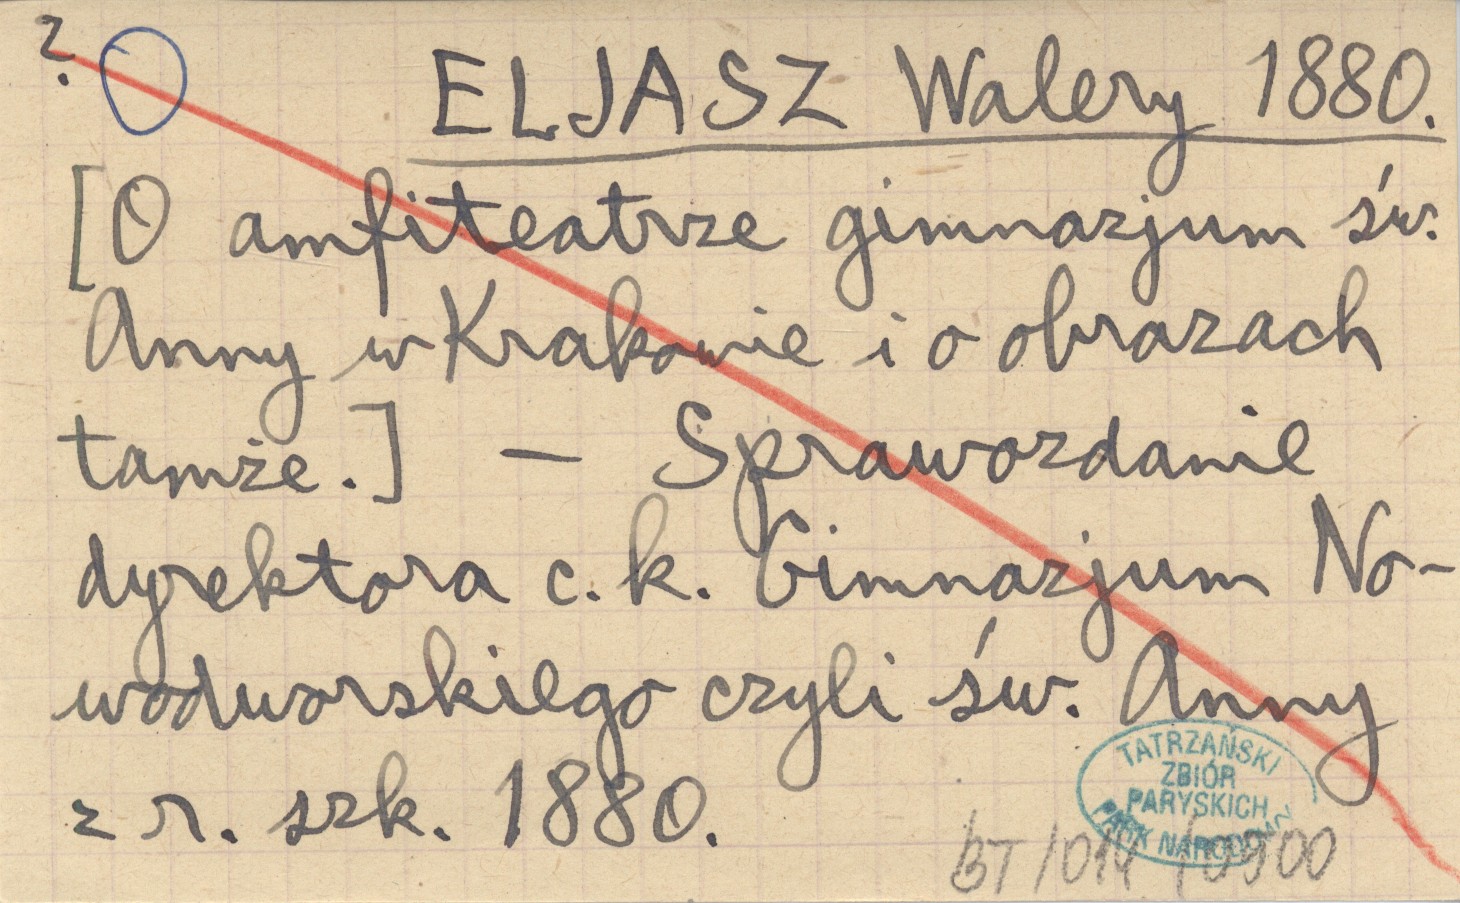 ?
ELJASZ Walery 1880.
[O amfiteatrze gimnazjum św.
Anny w Krakowie i o obrazach
tamże.] — Sprawozdanie
dyrektora c. k. Gimnazjum No-
wodworskiego czyli św. Anny
z r. szk. 1880.
TATRZAŃSKI
ZBIÓR
PARYSKICH
PARK NARODOWY
BT/014/00900